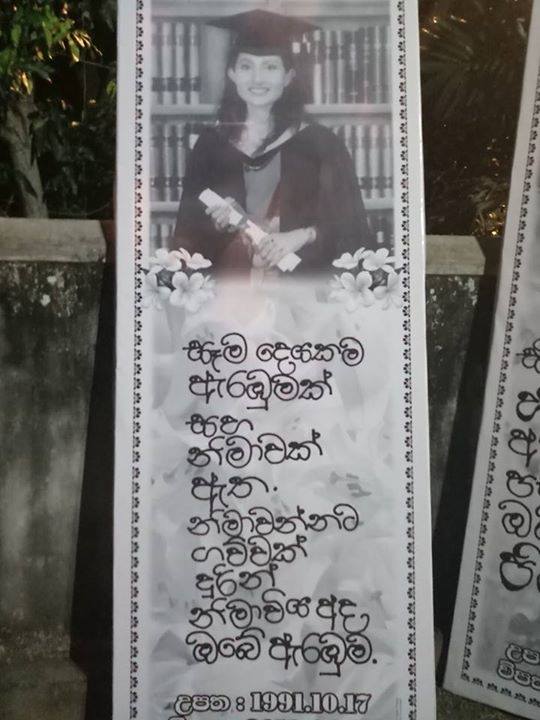 සෑම දෙයකම
ඇරඹුමක්
සහ
නිමාවක්
ඇත.
නිමාවන්නට
ගව්වක්
දුරින්
නිමාවිය අද,
ඔබේ ඇරඹුම.
උපත : 1991.10.17